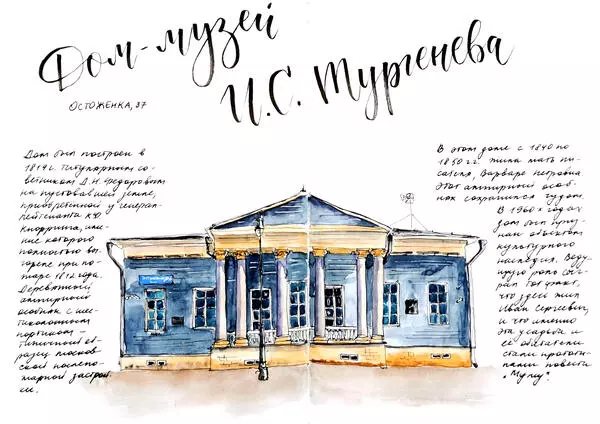 Дом-музей
И.С. Тургенева
ОСТОЖЕНКА, 37
Дом был построен в
1819 г. титулярным со-
ветником Д.Н. Федоровым
на пустовавшей земле,
приобретенной у генерал-
лейтенанта К.Ф.
Кнорринга, име-
ние которого
полностью вы-
горело при по-
жаре 1812 года.
Деревянный
ампирный
особняк с ше-
стиколонным
портиком -
типичный об-
разец москов-
ской послепо-
жарной застрой-
ки.
В этом доме с 1840 по
1850 гг. жила мать пи-
сателя, Варвара Петровна
Этот ампирный особ-
няк сохранился чудом.
В 1960х годах
дом был приз-
нан объектом
культурного
наследия. Веду-
щую роль сыг-
рал тот факт,
что здесь жил
Иван Сергеевич,
и что именно
эта усадьба и
её обитатели
стали прототи-
пами повести
"Муму".